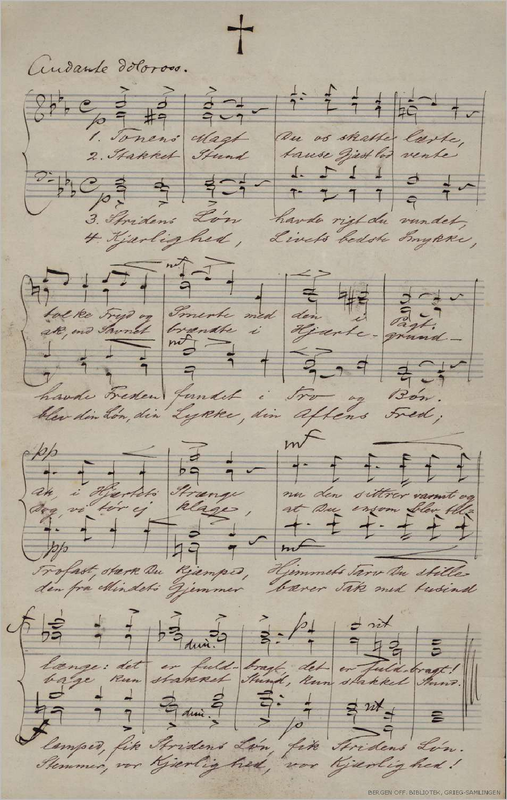 Andante doloroso.
p
1. Tonens Magt Du os skatte lærte,
2. Stakket Stund tause Gjæst lod vente
p
3. Stridens Løn havde rigt du vundet,
4 Kjærlighed, Livets bedste Smykke,
mf
tolke Fryd og Smerte med den i Pagt.
ak, med Savnet brændte i Hjærte-grund-
mf
havde Freden fundet i Tro og Bøn.
blev din Løn, din Lykke, din Aftens Fred;
pp mf
Ak, i Hjertets Strænge nu den sittrer varmt og
Dog vi tør ej klage, at Du ensom blev tilba
pp mf
Trofast, stærk Du kjæmped, Hjemmets Tarv Du stille
den fra Mindets Gjemmer bærer Tak med tusind
f dim. p rit
længe: det er fuld-bragt det er fuld-bragt!
bage kun stakket Stund, kun stakket Stund.
f dim. p rit
lemped, fik Stridens Løn, fik Stridens Løn.
Stemmer, vor Kjærlighed, vor Kjærlighed!
BERGEN OFF. BIBLIOTEK, GRIEG-SAMLINGEN